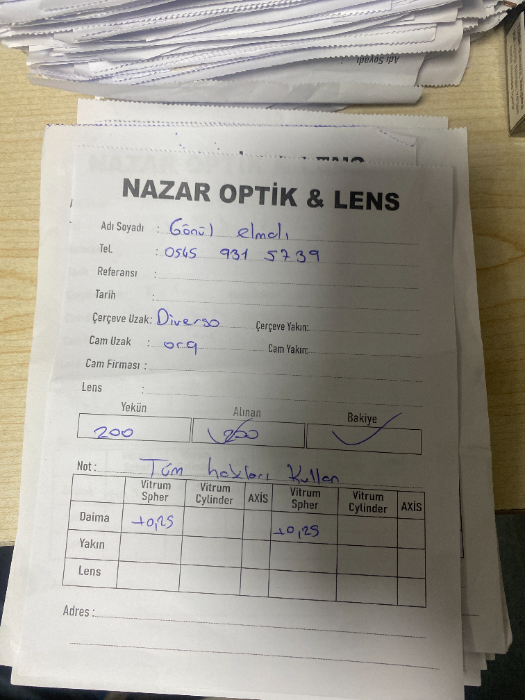 NAZAR OPTİK & LENS
Adı Soyadı : Gönül elmalı
Tel. : 0545 931 5739
Referansı :
Tarih :
Çerçeve Uzak: Diverso Çerçeve Yakın:
Cam Uzak : org Cam Yakın:
Cam Firması :
Lens :
Yekün Alınan Bakiye
200 200
Not : Tüm hakları Kullan
Vitrum Spher Vitrum Cylinder AXİS Vitrum Spher Vitrum Cylinder AXİS
Daima +0,25 +0,25
Yakın
Lens
Adres :